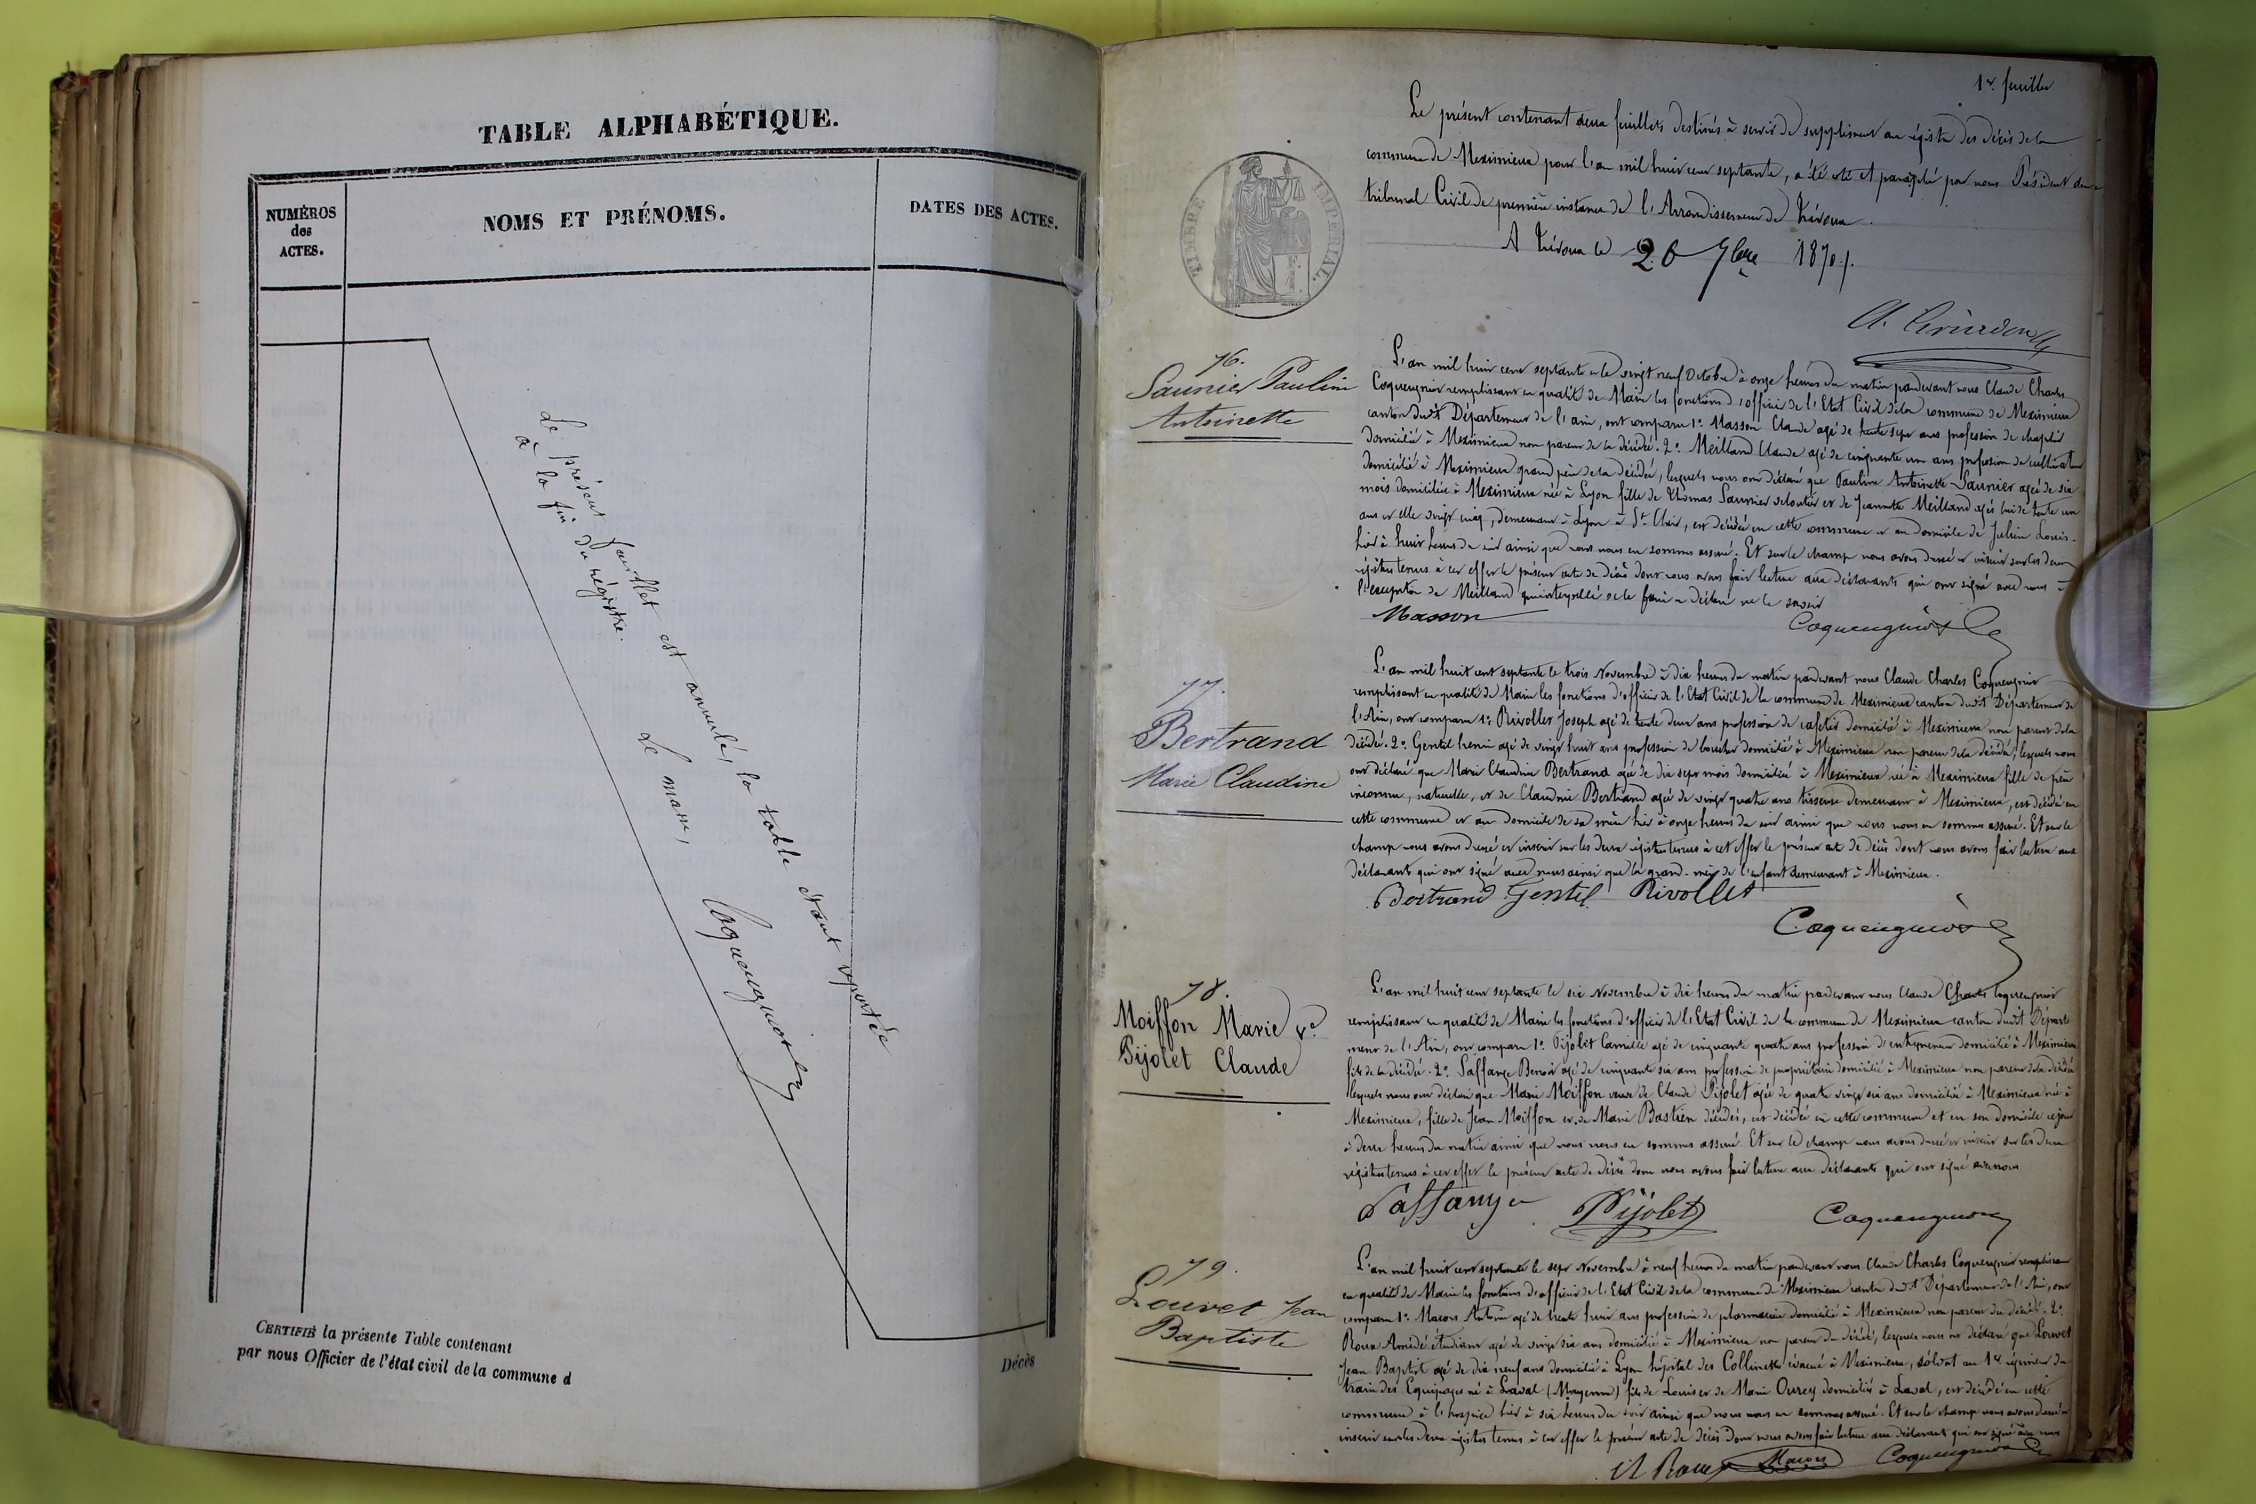 TABLE ALPHABÉTIQUE.
NUMÉROS
des
ACTES.
NOMS ET PRÉNOMS.
DATES DES ACTES.
Le présent feuillet est annulé, la table étant reportée
à la fin du régistre.
Le maire,
Coqueugniot
CERTIFIÉ la présente Table contenant
par nous Officier de l'état civil de la commune d
Décès
1er feuillet
Le présent contenant deux feuillets destinés à servir de supplément au régistre des décès de la
commune de Meximieux pour l'an mil huit cent septante, a été coté et paraphé par nous Président du
tribunal Civil de première instance de l'Arrondissement de Trévoux.
A Trévoux le 26 7bre 1870.
TIMBRE IMPÉRIAL.
76.
Saunier Pauline
Antoinette
L'an mil huit cent septante et le vingt neuf Octobre à onze heures du matin pardevant nous Claude Charles
Coqueugniot remplissant en qualité de Maire les fonctions d'officier de l'Etat Civil de la commune de Meximieux
canton dudit Département de l'ain, ont comparu 1º. Masson Claude agé de trente sept ans profession de
domicilié à Meximieux non parent de la décédée. 2º. Meilland Claude agé de cinquante un ans profession de cultivateur
domicilié à Meximieux grand père de la décédée, lesquels nous ont déclaré que Pauline Antoinette Saunier agée de six
mois domiciliée à Meximieux née à Lyon fille de Thomas Saunier veloutier et de Jeannette Meilland agés lui de trente un
ans et elle vingt cinq, demeurant à Lyon à St Clair, est décédée en cette commune et au domicile de Julien Louis.
hier à huit heures du soir ainsi que nous nous en sommes assuré. Et sur le champ nous avons dressé et inscrit sur les deux
régistres tenus à cet effet le présent acte de décès dont nous avons fait lecture aux déclarants qui ont signé avec nous à
l'exception de Meilland qui interpellé de le faire a déclaré ne le savoir
Masson
Coqueugniot
77.
Bertrand
Marie Claudine
L'an mil huit cent septante le trois Novembre à dix heures du matin pardevant nous Claude Charles Coqueugniot
remplissant en qualité de Maire les fonctions d'officier de l'Etat Civil de la commune de Meximieux canton dudit Département de
l'Ain, ont comparu 1º. Rivollet Joseph agé de trente deux ans profession de cafetier domicilié à Meximieux non parent de la
décédée. 2º. Gentil henri agé de vingt huit ans profession de boucher domicilié à Meximieux non parent de la décédée, lesquels nous
ont déclaré que Marie Claudine Bertrand agée de dix sept mois domiciliée à Meximieux née à Meximieux fille de père
inconnu, naturelle, et de Claudine Bertrand agée de vingt quatre ans tisseuse demeurant à Meximieux, est décédée en
cette commune et au domicile de sa mère hier à onze heures du soir ainsi que nous nous en sommes assuré. Et sur le
champ nous avons dressé et inscrit sur les deux régistres tenus à cet effet le présent acte de décès dont nous avons fait lecture aux
déclarants qui ont signé avec nous ainsi que la grand-mère de l'enfant demeurant à Meximieux.
Bertrand Gentil Rivollet
Coqueugniot
78.
Moiffon Marie Ve
Pijolet Claude
L'an mil huit cent septante le six Novembre à dix heures du matin pardevant nous Claude Charles Coqueugniot
remplissant en qualité de Maire les fonctions d'officier de l'Etat Civil de la commune de Meximieux canton dudit Départe
ment de l'Ain, ont comparu 1º. Pijolet Camille agé de cinquante quatre ans profession d'entrepreneur domicilié à Meximieux
fils de la décédée. 2º. Laffange Benoit agé de cinquante six ans profession de propriétaire domicilié à Meximieux non parent de la décédée
lesquels nous ont déclaré que Marie Moiffon veuve de Claude Pijolet agée de quatre vingt six ans domiciliée à Meximieux née à
Meximieux, fille de Jean Moiffon et de Marie Bastien décédés, est décédée en cette commune et en son domicile ce jour
à deux heures du matin ainsi que nous nous en sommes assuré. Et sur le champ nous avons dressé et inscrit sur les deux
régistres tenus à cet effet le présent acte de décès dont nous avons fait lecture aux déclarants qui ont signé avec nous
Laffange Pijolet Coqueugniot
79.
Louvet Jean
Baptiste
L'an mil huit cent septante le sept Novembre à neuf heures du matin pardevant nous Claude Charles Coqueugniot remplissant
en qualité de Maire les fonctions d'officier de l'Etat Civil de la commune de Meximieux canton dudit Département de l'Ain, ont
comparu 1º. Macors Antoine agé de trente huit ans profession de pharmacien domicilié à Meximieux non parent du décédé. 2º.
Roux Amédé étudiant agé de vingt six ans domicilié à Meximieux non parent du décédé, lesquels nous ont déclaré que Louvet
Jean Baptiste agé de dix neuf ans domicilié à Lyon hôpital des Collinettes évacué à Meximieux, soldat au 1er régiment du
train des Equipages né à Laval (Mayenne) fils de Louis et de Marie Ourey domiciliés à Laval, est décédé en cette
commune à l'hospice hier à six heures du soir ainsi que nous nous en sommes assuré. Et sur le champ nous avons dressé et
inscrit sur les deux régistres tenus à cet effet le présent acte de décès dont nous avons fait lecture aux déclarants qui ont signé avec nous
A Roux Macors Coqueugniot